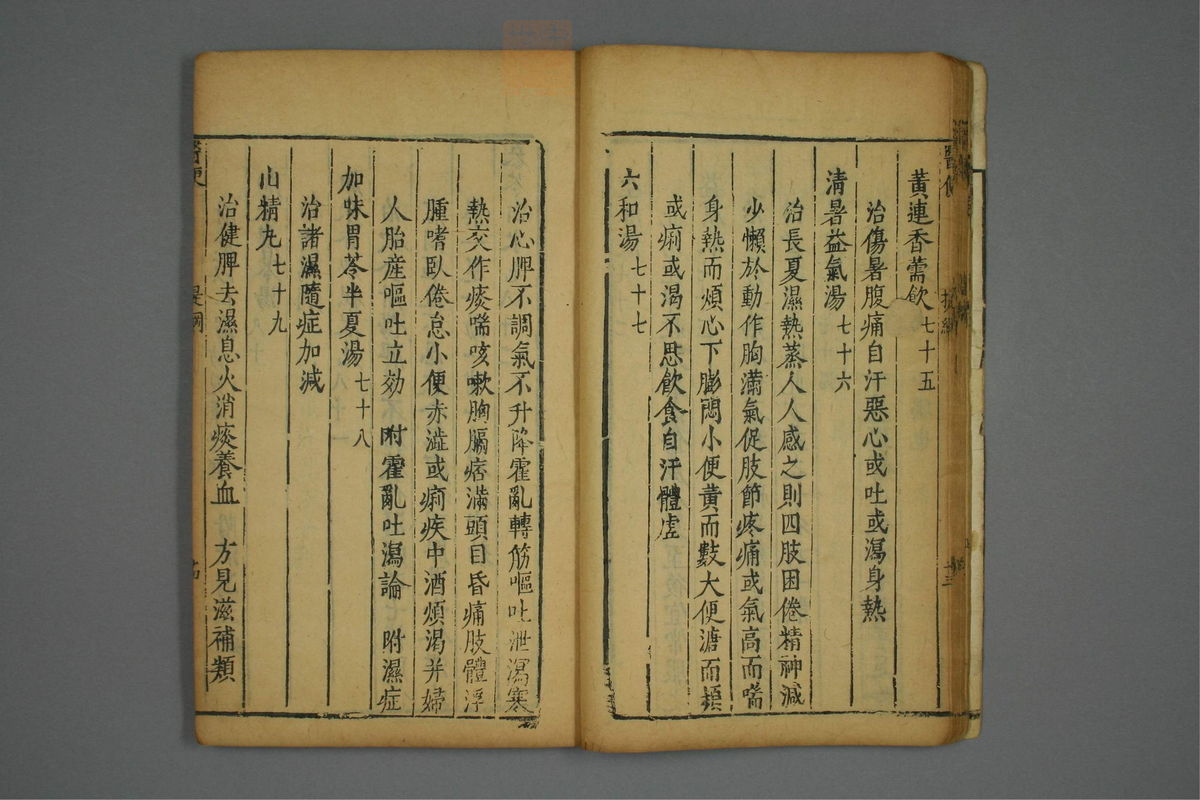 黃連香薷飲七十五
治傷暑腹痛自汗惡心或吐或瀉身熱
清暑益氣湯七十六
治長夏濕熱蒸人人感之則四肢困倦精神減
少懶於動作胸滿氣促肢節疼痛或氣高而喘
身熱而煩心下膨悶小便黃而數大便溏而頻
或痢或渴不思飲食自汗體虛
六和湯七十七
治心脾不調氣不升降霍亂轉筋嘔吐泄瀉寒
熱交作痰喘咳嗽胸膈痞滿頭目昏痛肢體浮
腫嗜臥倦怠小便赤澁或痢疾中酒煩渴并婦
人胎產嘔吐立効 附霍亂吐瀉論 附濕症
加味胃苓半夏湯七十八
治諸濕隨症加減
山精丸七十九
治健脾去濕息火消痰養血 方見滋補類
醫便 提綱